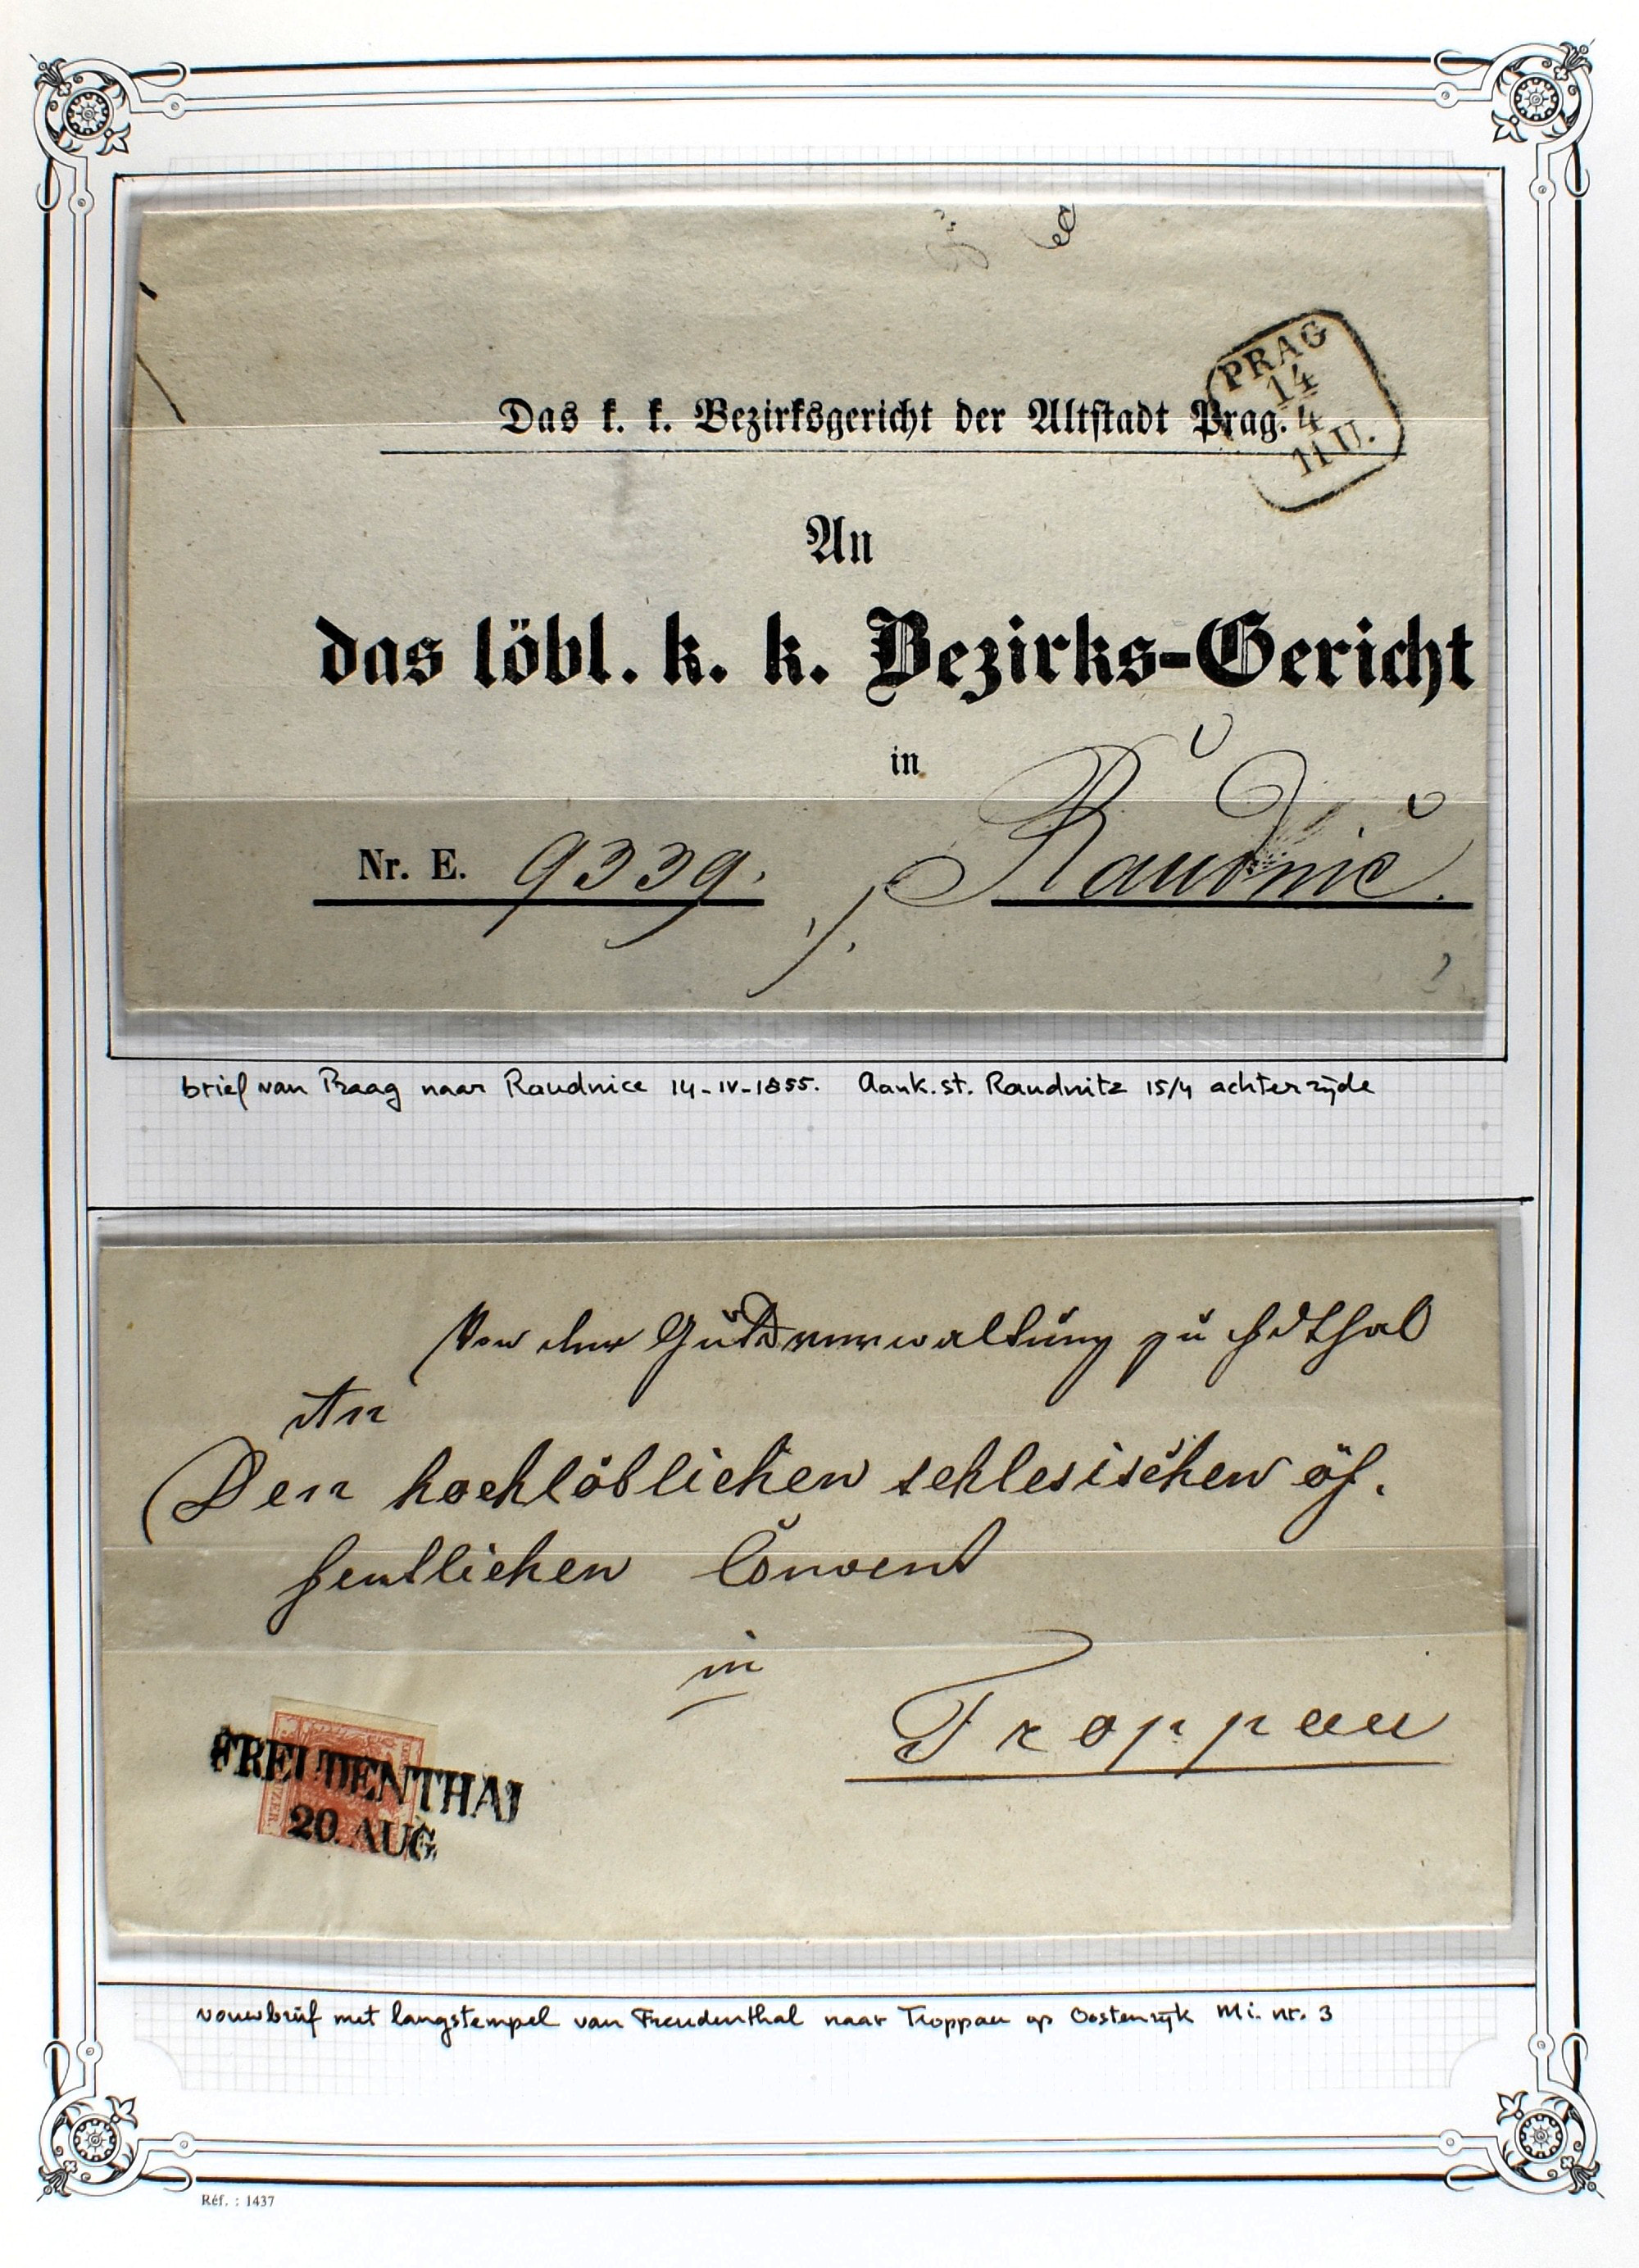 PRAG
14
4
11 U.
Das k. k. Bezirksgericht der Altstadt Prag.
An
das löbl. k. k. Bezirks-Gericht
in
Nr. E. 9339. Raudnic.
brief van Praag naar Raudnice 14-IV-1855. Aank.st. Raudnitz 15/4 achterzijde
Von der Gutsverwaltung zu
An
Den hochlöblichen schlesischen öf.
fentlichen Convent
in
Troppau
FREUDENTHAL
20. AUG.
vouwbrief met langstempel van Freudenthal naar Troppau op Oostenrijk Mi. nr. 3
Réf. : 1437